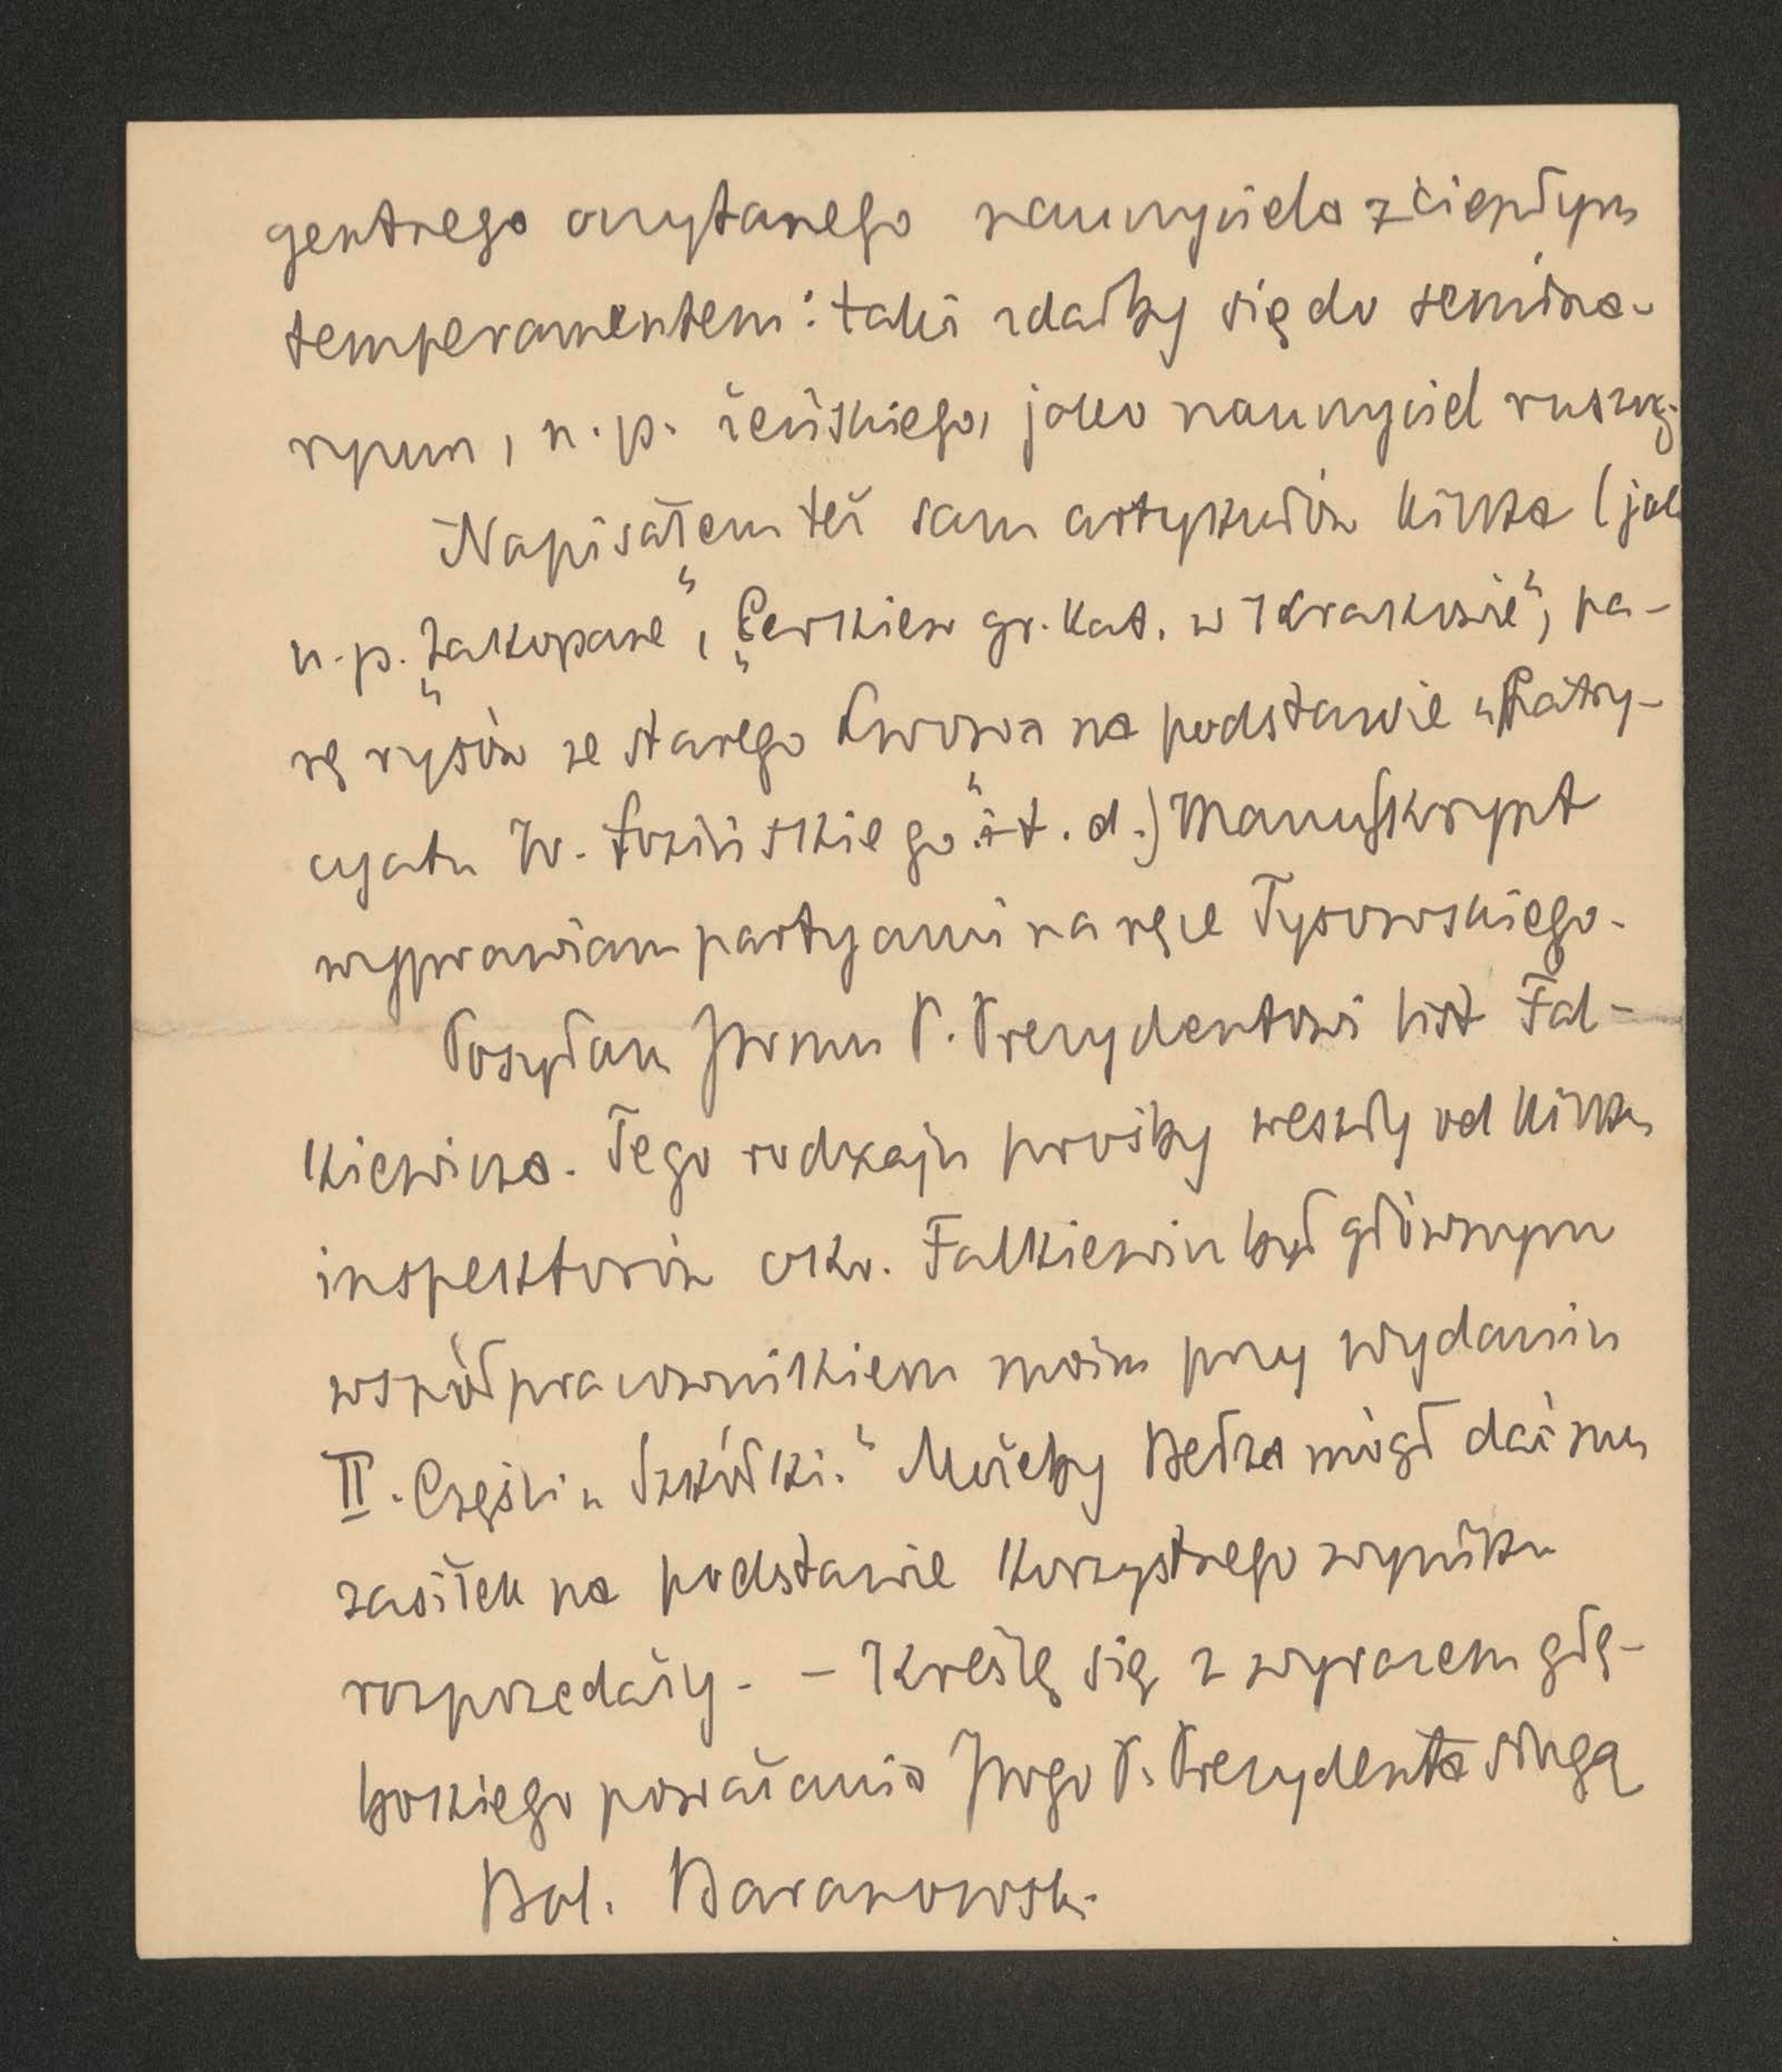 gentnego oczytanego nauczyciela z ciepłym
temperamentem: taki zdałby się do semina-
ryum, n. p. żeńskiego, jako nauczyciel ruszcz.
Napisałem też sam artykułów kilka (jak
n. p. „Zakopane“, „Cerkiew gr. kat. w Krakowie“, pa-
rę rysów ze starego Lwowa na podstawie „Patry-
cyatu W. Łozińskiego“ i t. d.) Manuskrypt
wyprawiam partyami na ręce Tysowskiego.
Posyłam JWmu P. Prezydentowi list Fal-
kiewicza. Tego rodzaju prośby weszły od kilku
inspektorów okr. Falkiewicz był głównym
współpracownikiem moim przy wydaniu
II. Części „Szkółki.“ Możeby Bełza mógł dać mu
zasiłek na podstawie korzystnego wyniku
rozprzedaży. – Kreślę się z wyrazem głę-
bokiego poważania JWgo P. Prezydenta sługą
Bol. Baranowski